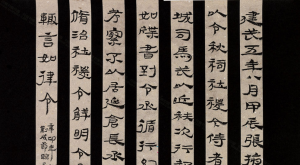 建武五年八月甲辰張掖
以令秋祠社稷令侍者
城司馬武以近秩次行
如牒書到令丞循行
考察以居延倉長丞
脩治社稷令鮮明令
輒言如律令